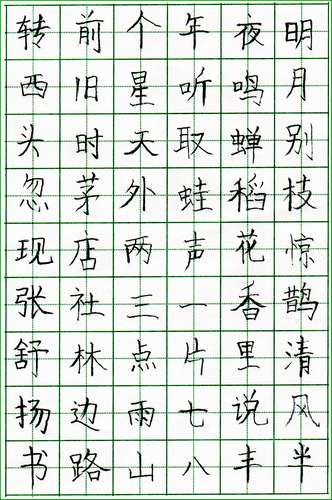 明月别枝惊鹊清风半
夜鸣蝉稻花香里说丰
年听取蛙声一片七八
个星天外两三点雨山
前旧时茅店社林边路
转西头忽现张舒扬书